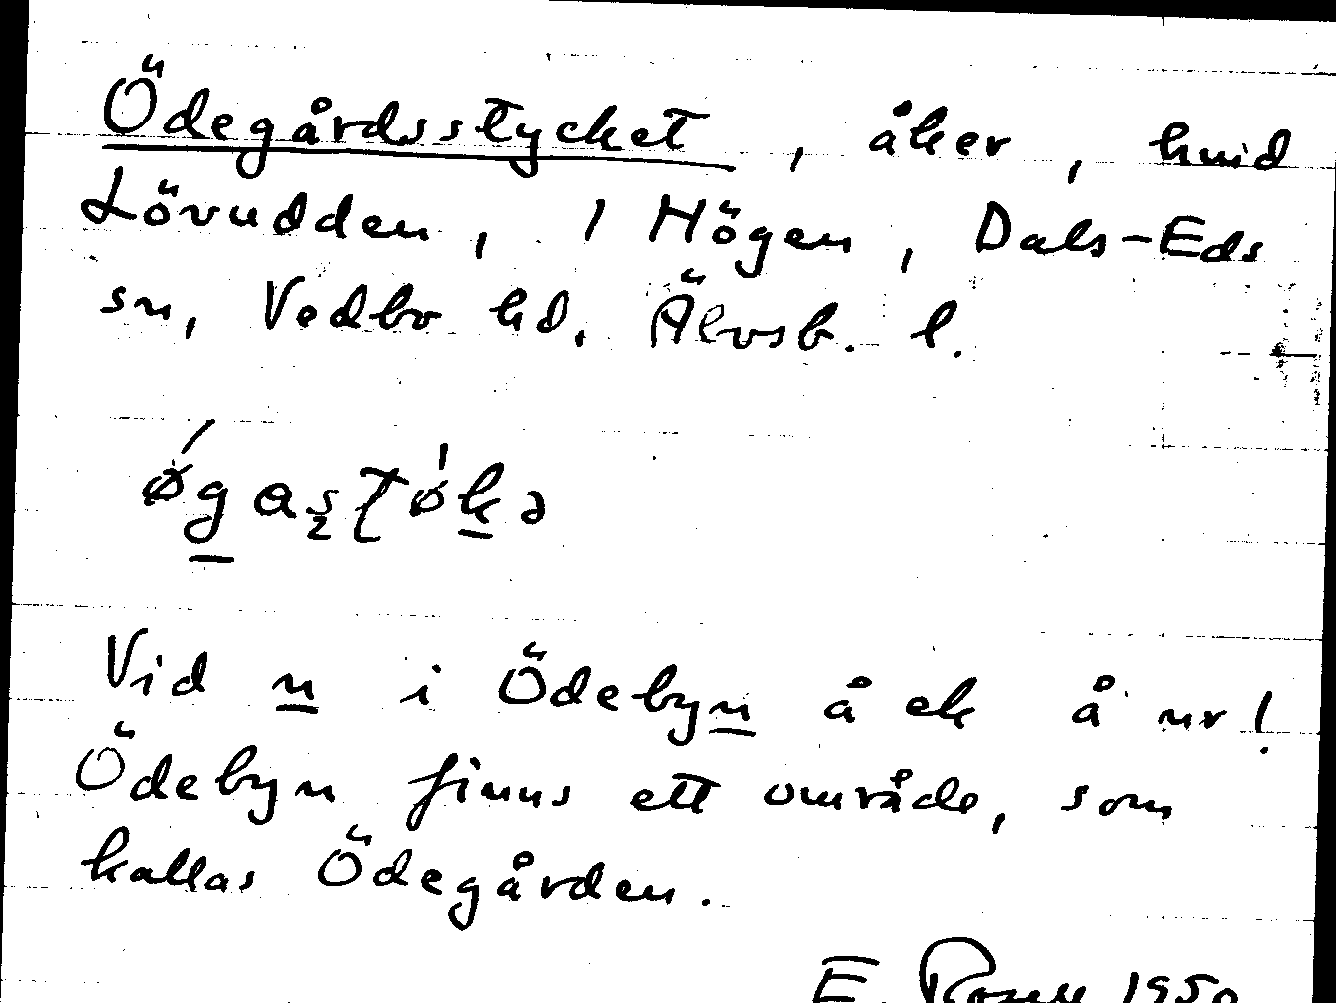 Ödegårdsstycket, åker, hmid
Lövudden, 1 Högen, Dals-Eds
sn, Vedbo hd. Älvsb. l.
Vid n i Ödebyn å ek å nr!
Ödebyn finns ett område, som
kallas Ödegården.
E. 1950